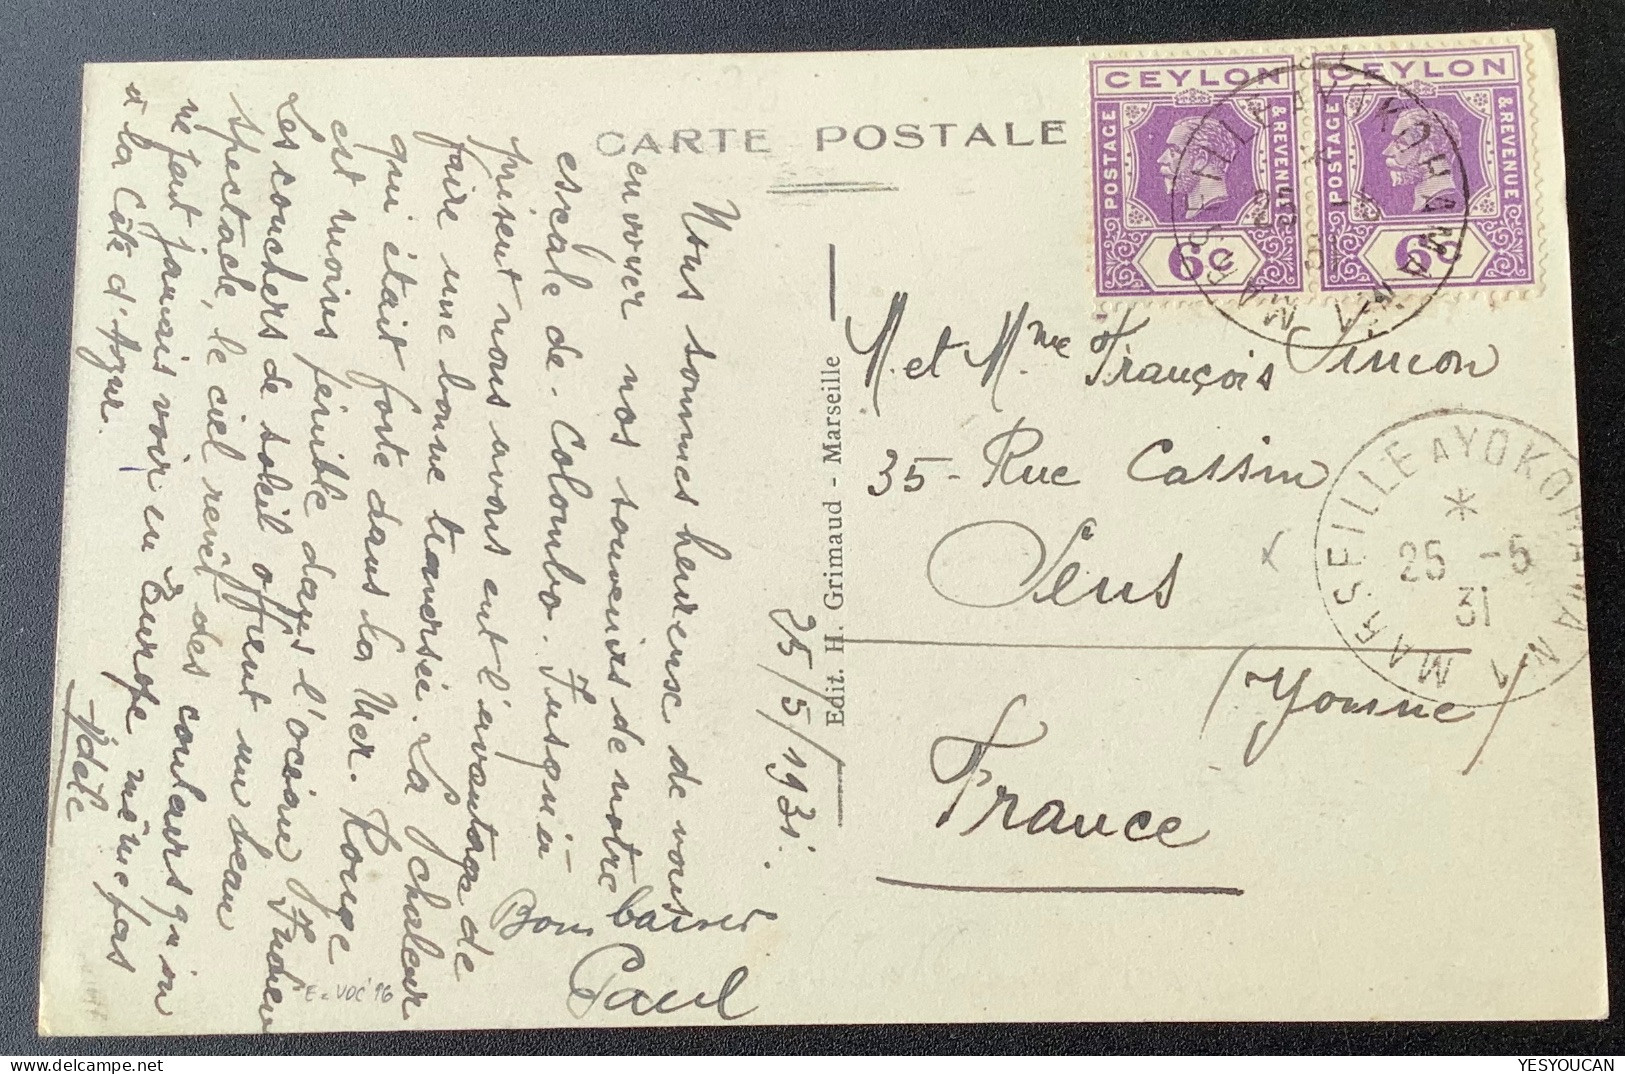 CARTE POSTALE
CEYLON
POSTAGE
& REVENUE
6c
CEYLON
POSTAGE
& REVENUE
6c
MARSEILLE A YOKOHAMA N1
25 -5
31
MARSEILLE A YOKOHAMA N1
25 -5
31
25/5/1931.
Nous sommes heureuse de vous
envoyer nos souvenirs de notre
escale de Colombo. Jusqu'à
présent nous avons eut l'avantage de
faire une bonne traversée. La chaleur
qui était forte dans la Mer Rouge
est moins pénible dans l'océan Indien
Les couchers de soleil offrent un beau
spectacle, le ciel revêt des couleurs qu'on
ne peut jamais voir en Europe même pas
à la Côte d'Azur.
Adèle
Bons baisers
Paul
E-VOC 16
Edit. H. Grimaud - Marseille
M. et Mme François Simon
35 - Rue Cassin
Sens
(Yonne)
France
YESYOUCAN